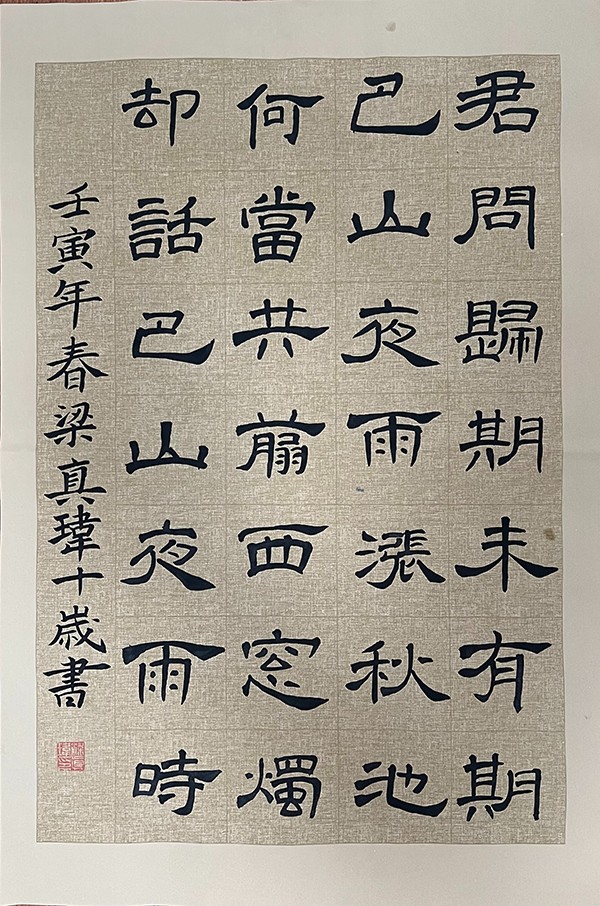 君問歸期未有期
巴山夜雨漲秋池
何當共翦西窓燭
却話巴山夜雨時
壬寅年春梁真瑋十歲書